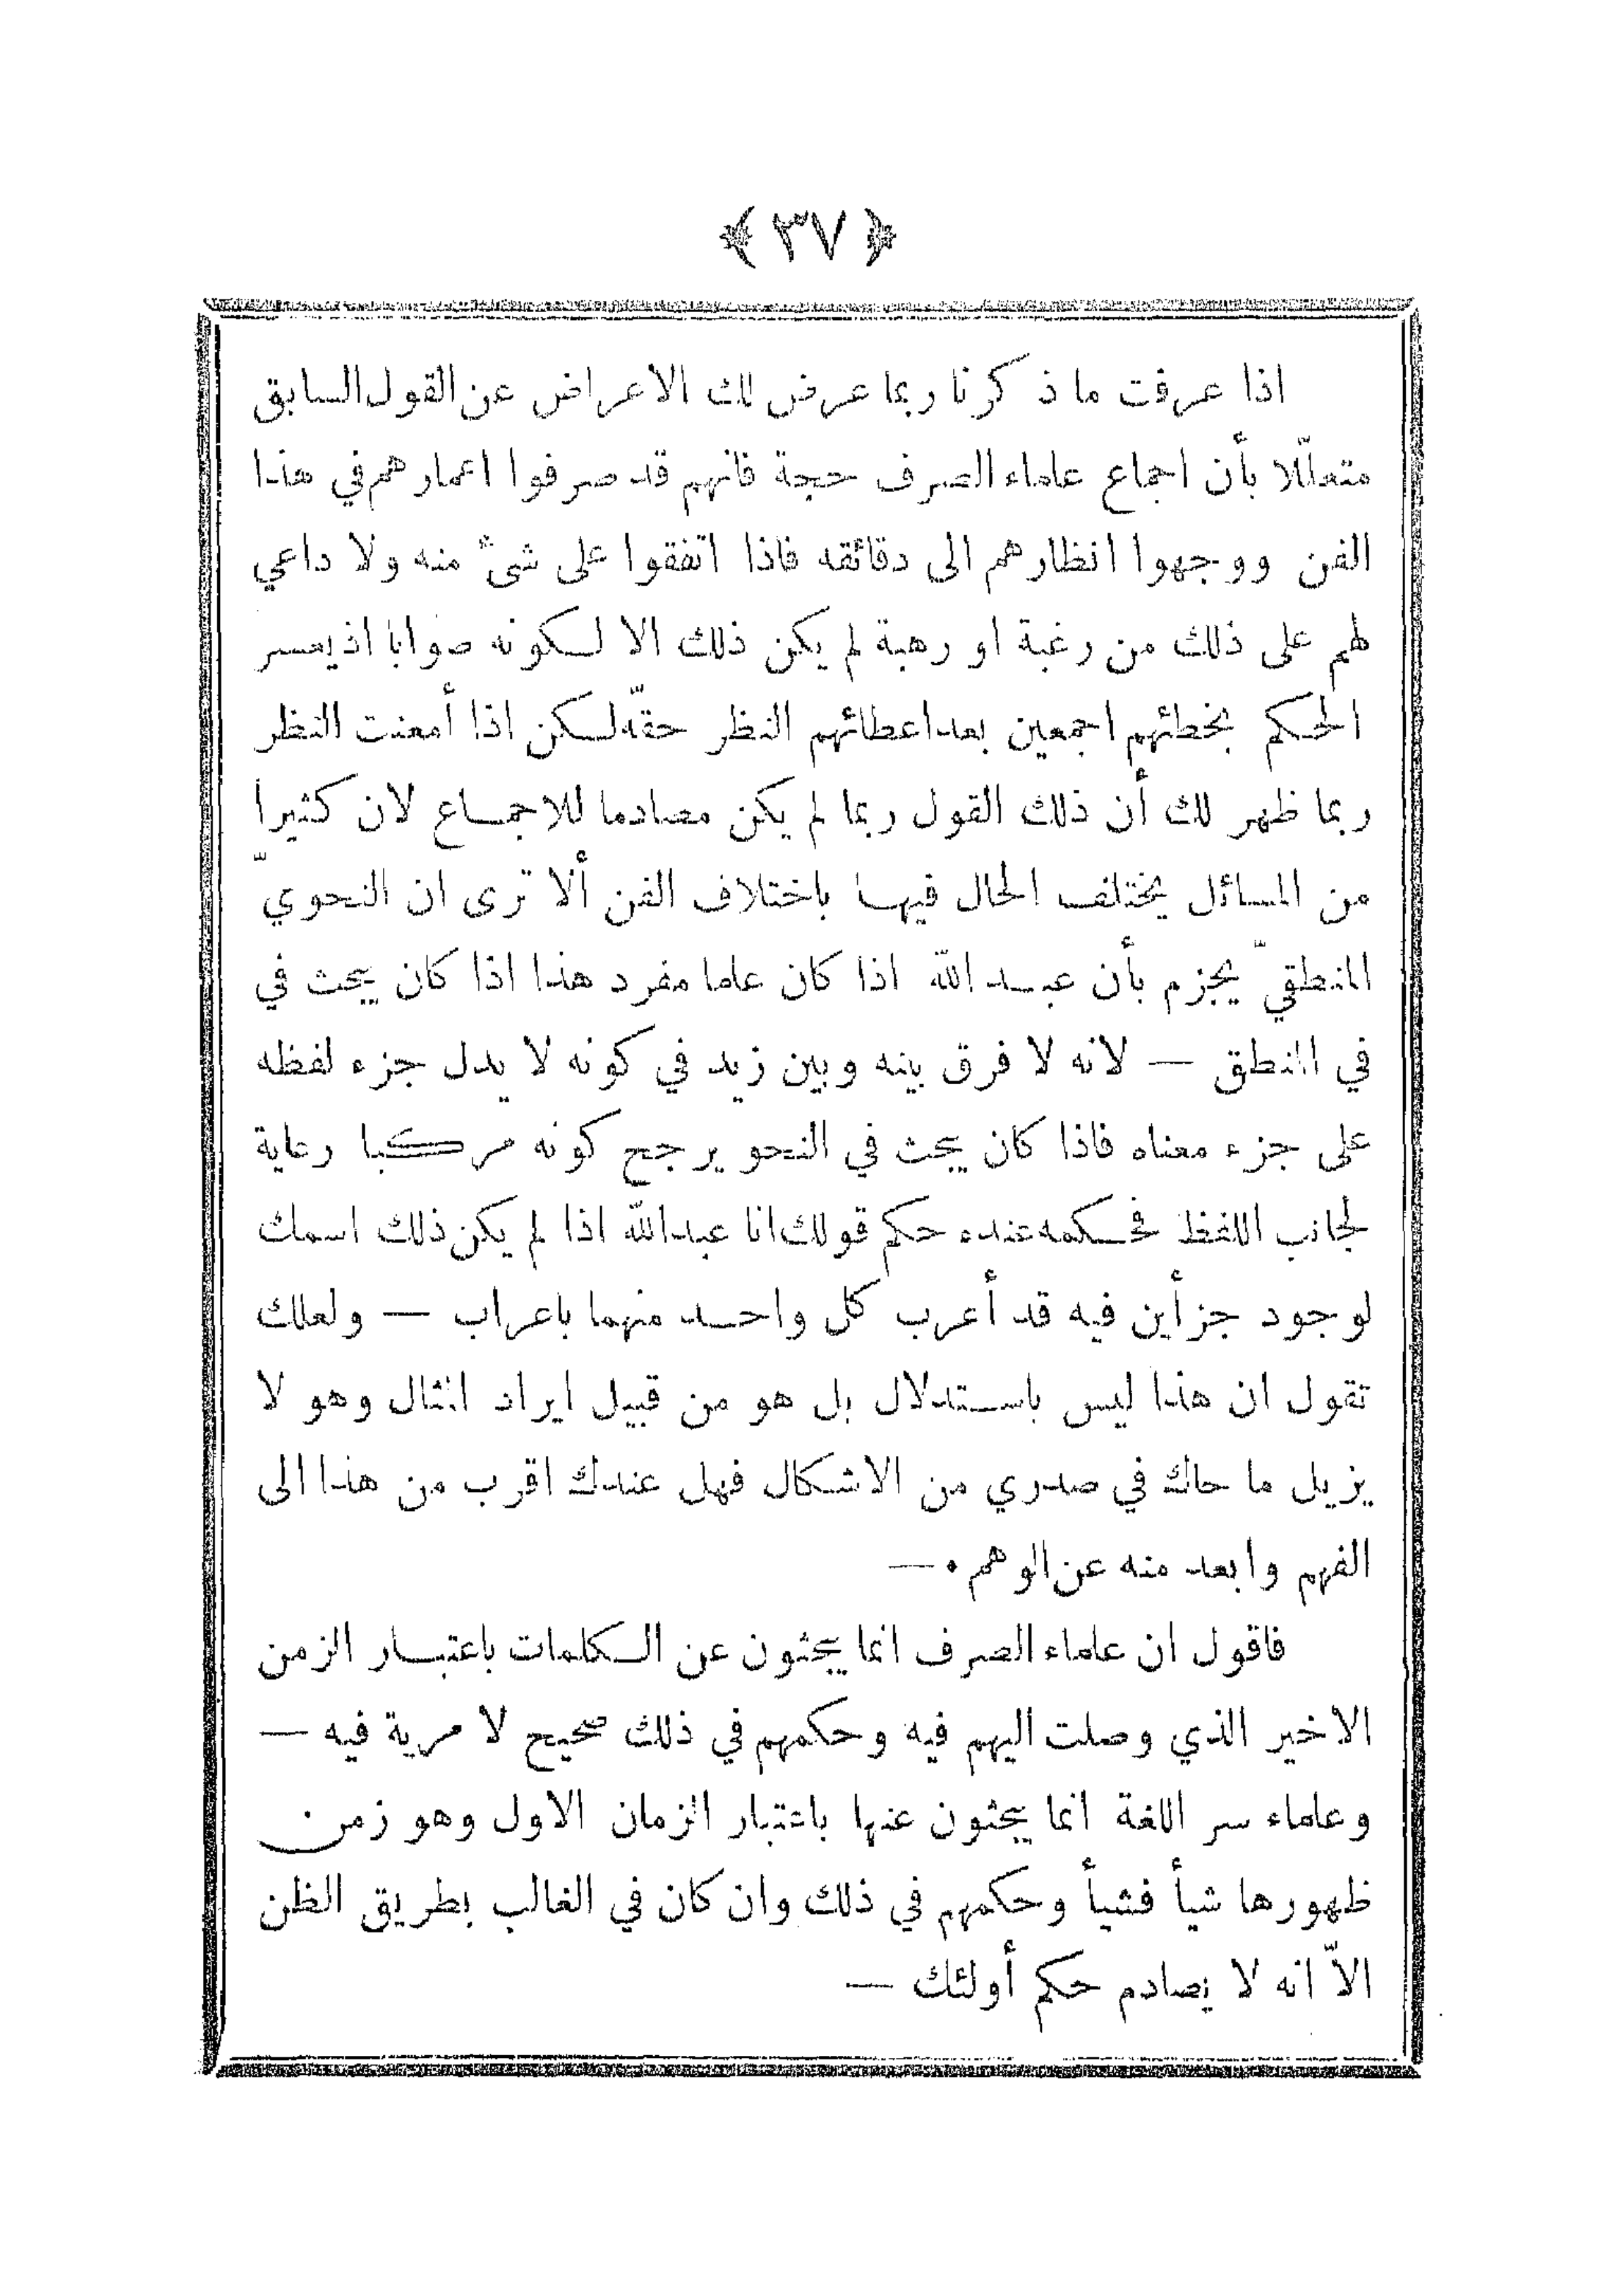 ﴿ ٣٧ ﴾
اذا عرفت ما ذكرنا ربما عرض لك الاعراض عن القول السابق
متعللّا بأن اجماع علماء الصرف حجة فانهم قد صرفوا اعمارهم في هذا
الفن ووجهوا انظارهم الى دقائقه فاذا اتفقوا على شئ منه ولا داعي
لهم على ذلك من رغبة او رهبة لم يكن ذلك الا لكونه صوابا اذ يعسر
الحكم بخطئهم اجمعين بعد اعطائهم النظر حقّه لكن اذا أمعنت النظر
ربما ظهر لك أن ذلك القول ربما لم يكن مصادما للاجماع لان كثيرا
من المسائل يختلف الحال فيها باختلاف الفن ألا ترى ان النحويّ
المنطقيّ يجزم بأن عبد الله اذا كان علما مفرد هذا اذا كان يبحث في
في المنطق — لانه لا فرق بينه وبين زيد في كونه لا يدل جزء لفظه
على جزء معناه فاذا كان يبحث في النحو يرجح كونه مركبا رعاية
لجانب اللفظ فحكمه عنده حكم قولك انا عبد الله اذا لم يكن ذلك اسمك
لوجود جزأين فيه قد أعرب كل واحد منهما باعراب — ولعلك
تقول ان هذا ليس باستدلال بل هو من قبيل ايراد المثال وهو لا
يزيل ما حاك في صدري من الاشكال فهل عندك اقرب من هذا الى
الفهم وابعد منه عن الوهم ٠ —
فاقول ان علماء الصرف انما يبحثون عن الكلمات باعتبار الزمن
الاخير الذي وصلت اليهم فيه وحكمهم في ذلك صحيح لا مرية فيه —
وعلماء سر اللغة انما يبحثون عنها باعتبار الزمان الاول وهو زمن
ظهورها شيأ فشيأ وحكمهم في ذلك وان كان في الغالب بطريق الظن
الاّ انه لا يصادم حكم أولئك —